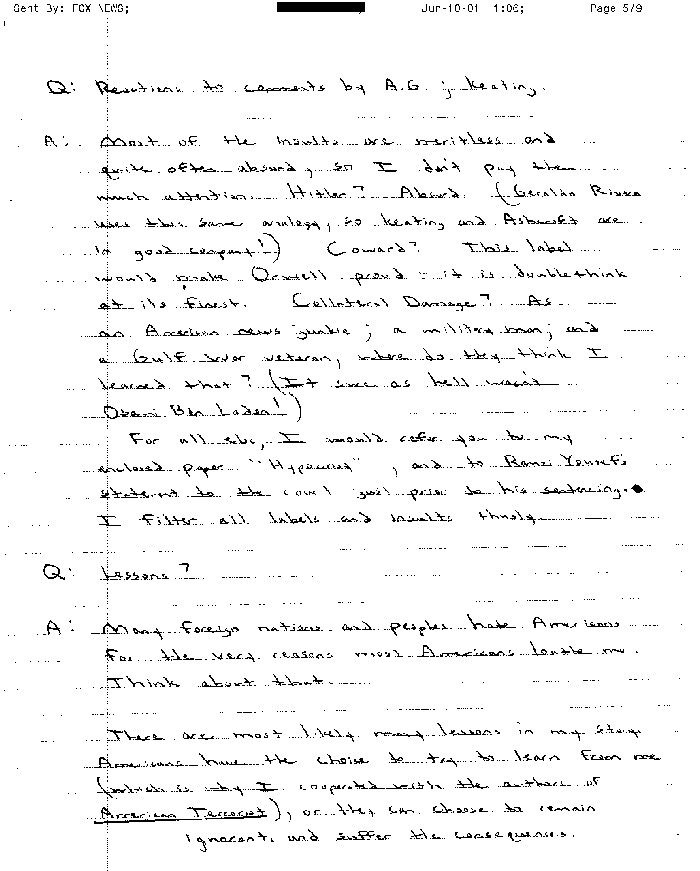 Sent By: FOX NEWS; Jun-10-01 1:06; Page 5/9
Q: Reactions to comments by A.G. ; Keating.
A: Most of the insults are meritless and
quite often absurd, so I don't pay them
much attention. Hitler? Absurd. (Geraldo Rivera
uses this same analogy, so Keating and Ashcroft are
in good company!) Coward? This label
would make Orwell proud - it is doublethink
at its finest. Collateral Damage? As
an American news junkie; a military man; and
a Gulf War veteran, where do they think I
learned that? (It sure as hell wasn't
Osami Ben Laden!)
For all else, I would refer you to my
enclosed paper "Hypocrisy", and to Ramzi Yousef's
statement to the court just prior to his sentencing.
I filter all labels and insults thusly.
Q: Lessons?
A: Many foreign nations and peoples hate Americans
for the very reasons most Americans loathe me.
Think about that.
There are most likely many lessons in my story.
Americans have the choice to try to learn from me
(which is why I cooperated with the authors of
American Terrorist), or they can choose to remain
ignorant, and suffer the consequences.